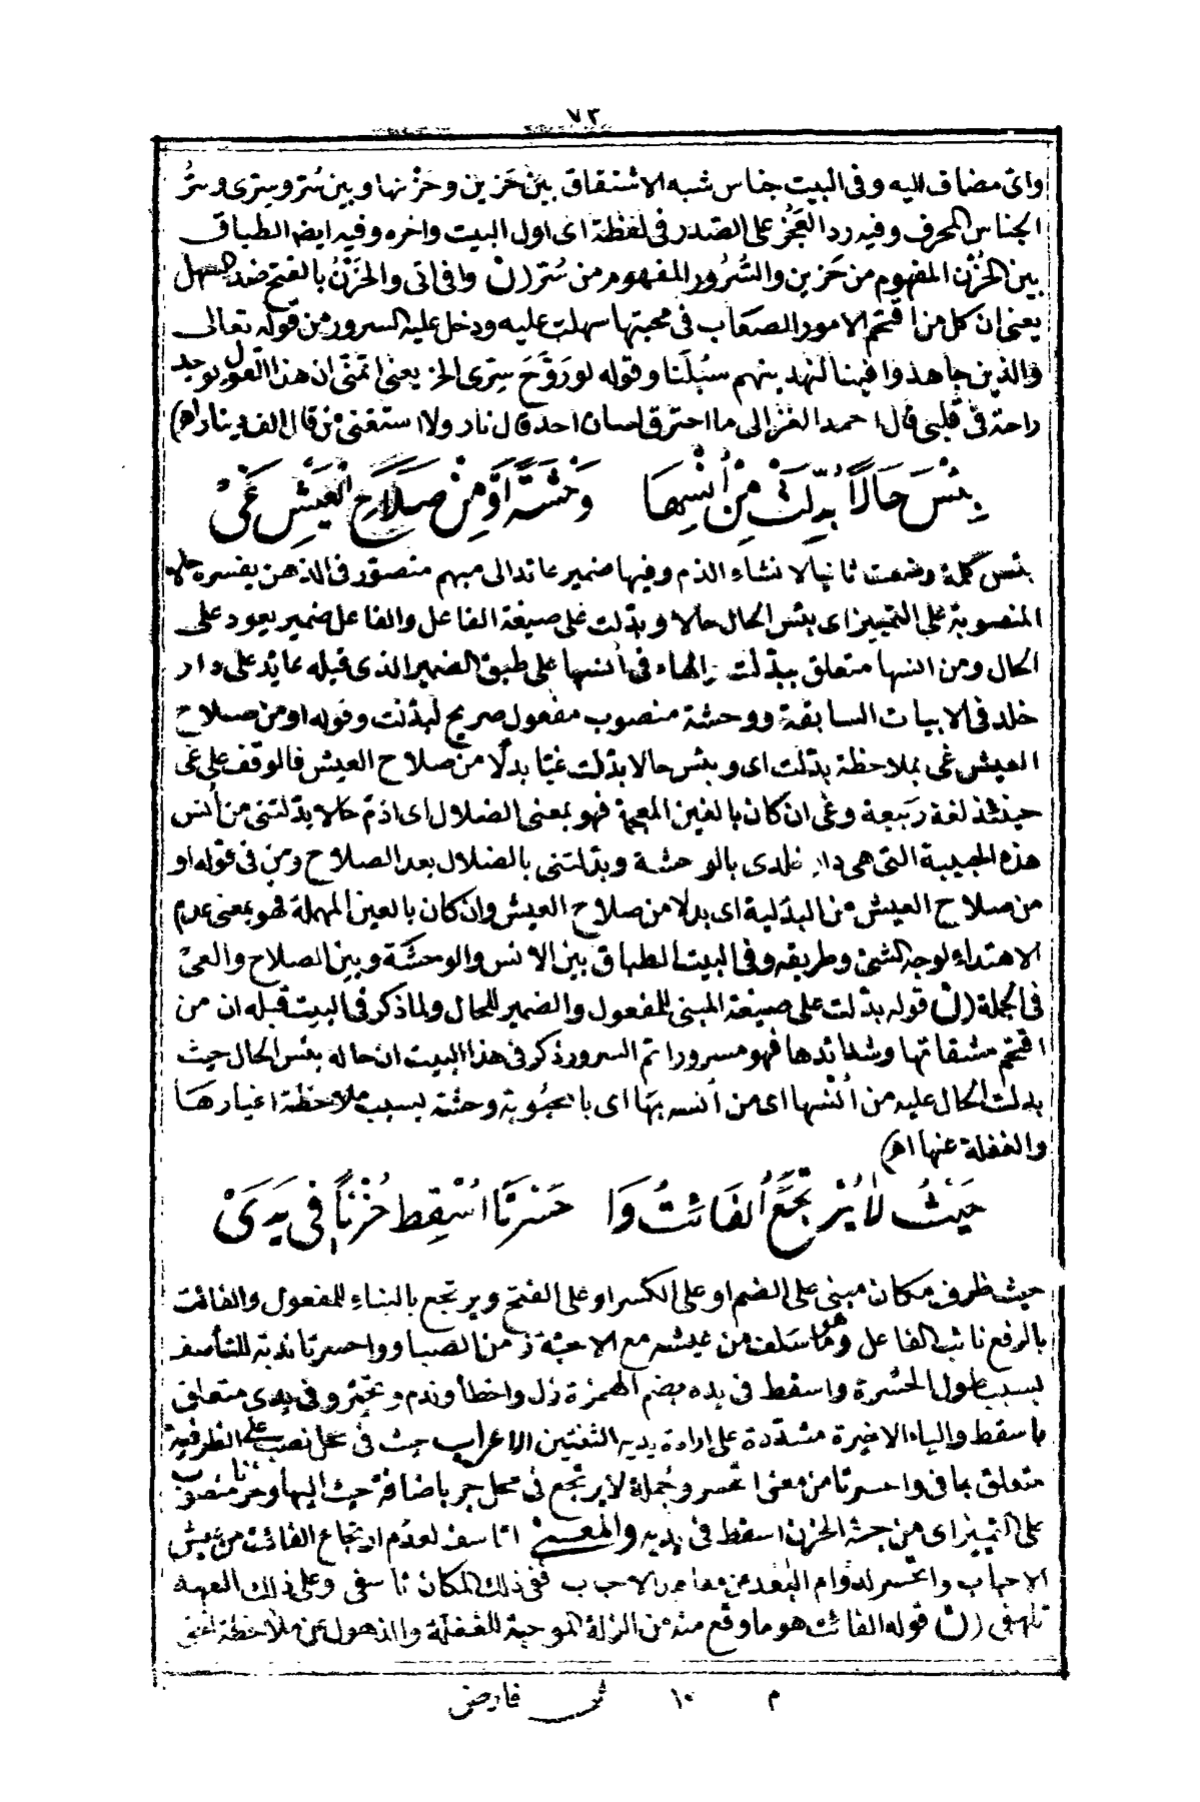 ٧٣
واتى مضاف اليه وفى البيت جناس شبه الاشتقاق بين حَزِين وحَزْنها وبين سُتر وسِترى وسُرّ
الجناس المحرف وفيه رد العَجُز على الصَدر فى لفظة اى اول البيت واخره وفيه ايضا الطباق
بين الحُزْن المفهوم من حَزين والسُّرُور المفهوم من سُتر (ن) وافى اتى والحَزْنُ بالفتح ضد السهل
يعنى ان كل من اقتحم الامور الصعاب فى محبتها سهلت عليه ودخل عليه السرور من قوله تعالى
والذين جاهدوا فينا لنهدينهم سُبُلَنا وقوله لو رَوَّحَ سِترى الخ يعنى اتمنى ان هذا القول يوجد
راحة فى قلبى قال احمد الغزالى ما احترق لسان احد قال نار ولا استغنى من قال الف دينار اه)
بِئْسَ حَالاً بُدِّلَتْ مِنْ أُنْسِهَا وَحْشَةً اَوْ مِنْ صَلَاحِ الْعَيْشِ غَىّْ
بئس كلمة وضعت ثانيا لانشاء الذم وفيها ضمير عائد الى مبهم متصوّر فى الذهن يفسره حالا
المنصوبة على التمييز اى بئس الحال حالا وبدّلت على صيغة الفاعل والفاعل ضمير يعود على
الحال ومن انسها متعلق ببدّلت والهاء فى أنسها على طبق الضمير الذى قبله عايد على دار
خلد فى الابيات السابقة ووحشة منصوب مفعول صريح لبدّلت وقوله او من صلاح
العيش غى بملاحظة بدّلت اى وبئس حالا بدّلت غيّا بدلًا من صلاح العيش فالوقف على غى
حينئذ لغة رَبيعة وغى ان كان بالغين المعجمة فهو بمعنى الضلال اى اذمّ حالا بدّلتنى من أنس
هذه الحبيبة التى هى دار خلدى بالوحشة وبدّلتنى بالضلال بعد الصلاح ومن فى قوله او
من صلاح العيش من البدَلية اى بدلا من صلاح العيش وان كان بالعين المهملة فهو بمعنى عدم
الاهتداء لوجه الشئ وطريقه وفى البيت الطباق بين الانس والوحشة وبين الصلاح والغىّ
فى الجملة (ن) قوله بدّلت على صيغة المبنى للمفعول والضمير للحال ولما ذكر فى البيت قبله ان من
اقتحم مشقاتها وشدائدها فهو مسرور اتم السرور ذكر فى هذا البيت ان حاله بئس الحال حيث
بدلت الحال عليه من أُنْسها اى من أنسه بهَا اى بالمحبُوبة وحشة بسبب ملاحظة اغيارهَا
والغفلة عنها اه)
حَيْثُ لَا يُرْتَجَعُ الفَائِتُ وَا حَسْرَتَا اُسْقِط حُزْنًا فِى يَدَىّْ
حيث ظرف مكان مبنى على الضم او على الكسر او على الفتح ويرتجع بالبناء للمفعول والفائت
بالرفع نائب الفاعل وهو ما سَلف من عيشه مع الاحبّة زمن الصبا وواحسرتا ندبة للتأسف
بسبب طول الحَسْرة واسقط فى يده بضم الهمزة زل واخطأ وندم وتحيّر وفى يدى متعلق
باسقط والياء الاخيرة مشدّدة على ارادة يديه الثنتين الاعراب حيث فى محل نصب على الظرفية
متعلق بما فى واحسرتا من معنى اتحسر وجُملة لا يرتجع فى محل جر باضافة حيث اليها وحزنا منصوب
على التمييز اى من جهة الحزن اسقط فى يديه والمعنى اتأسف لعدَم ارتجاع الفائت من عيش
الاحباب واتحسر لدوام البُعد من معاهد الاحباب ففى ذلك المكان تأسفى وعلى ذلك العهد
تلهفى (ن) قوله الفائت هو ما وقع منه من الزلة الموجبة للغفلة والذهول عن ملاحظة
م ١٠ نى فارض